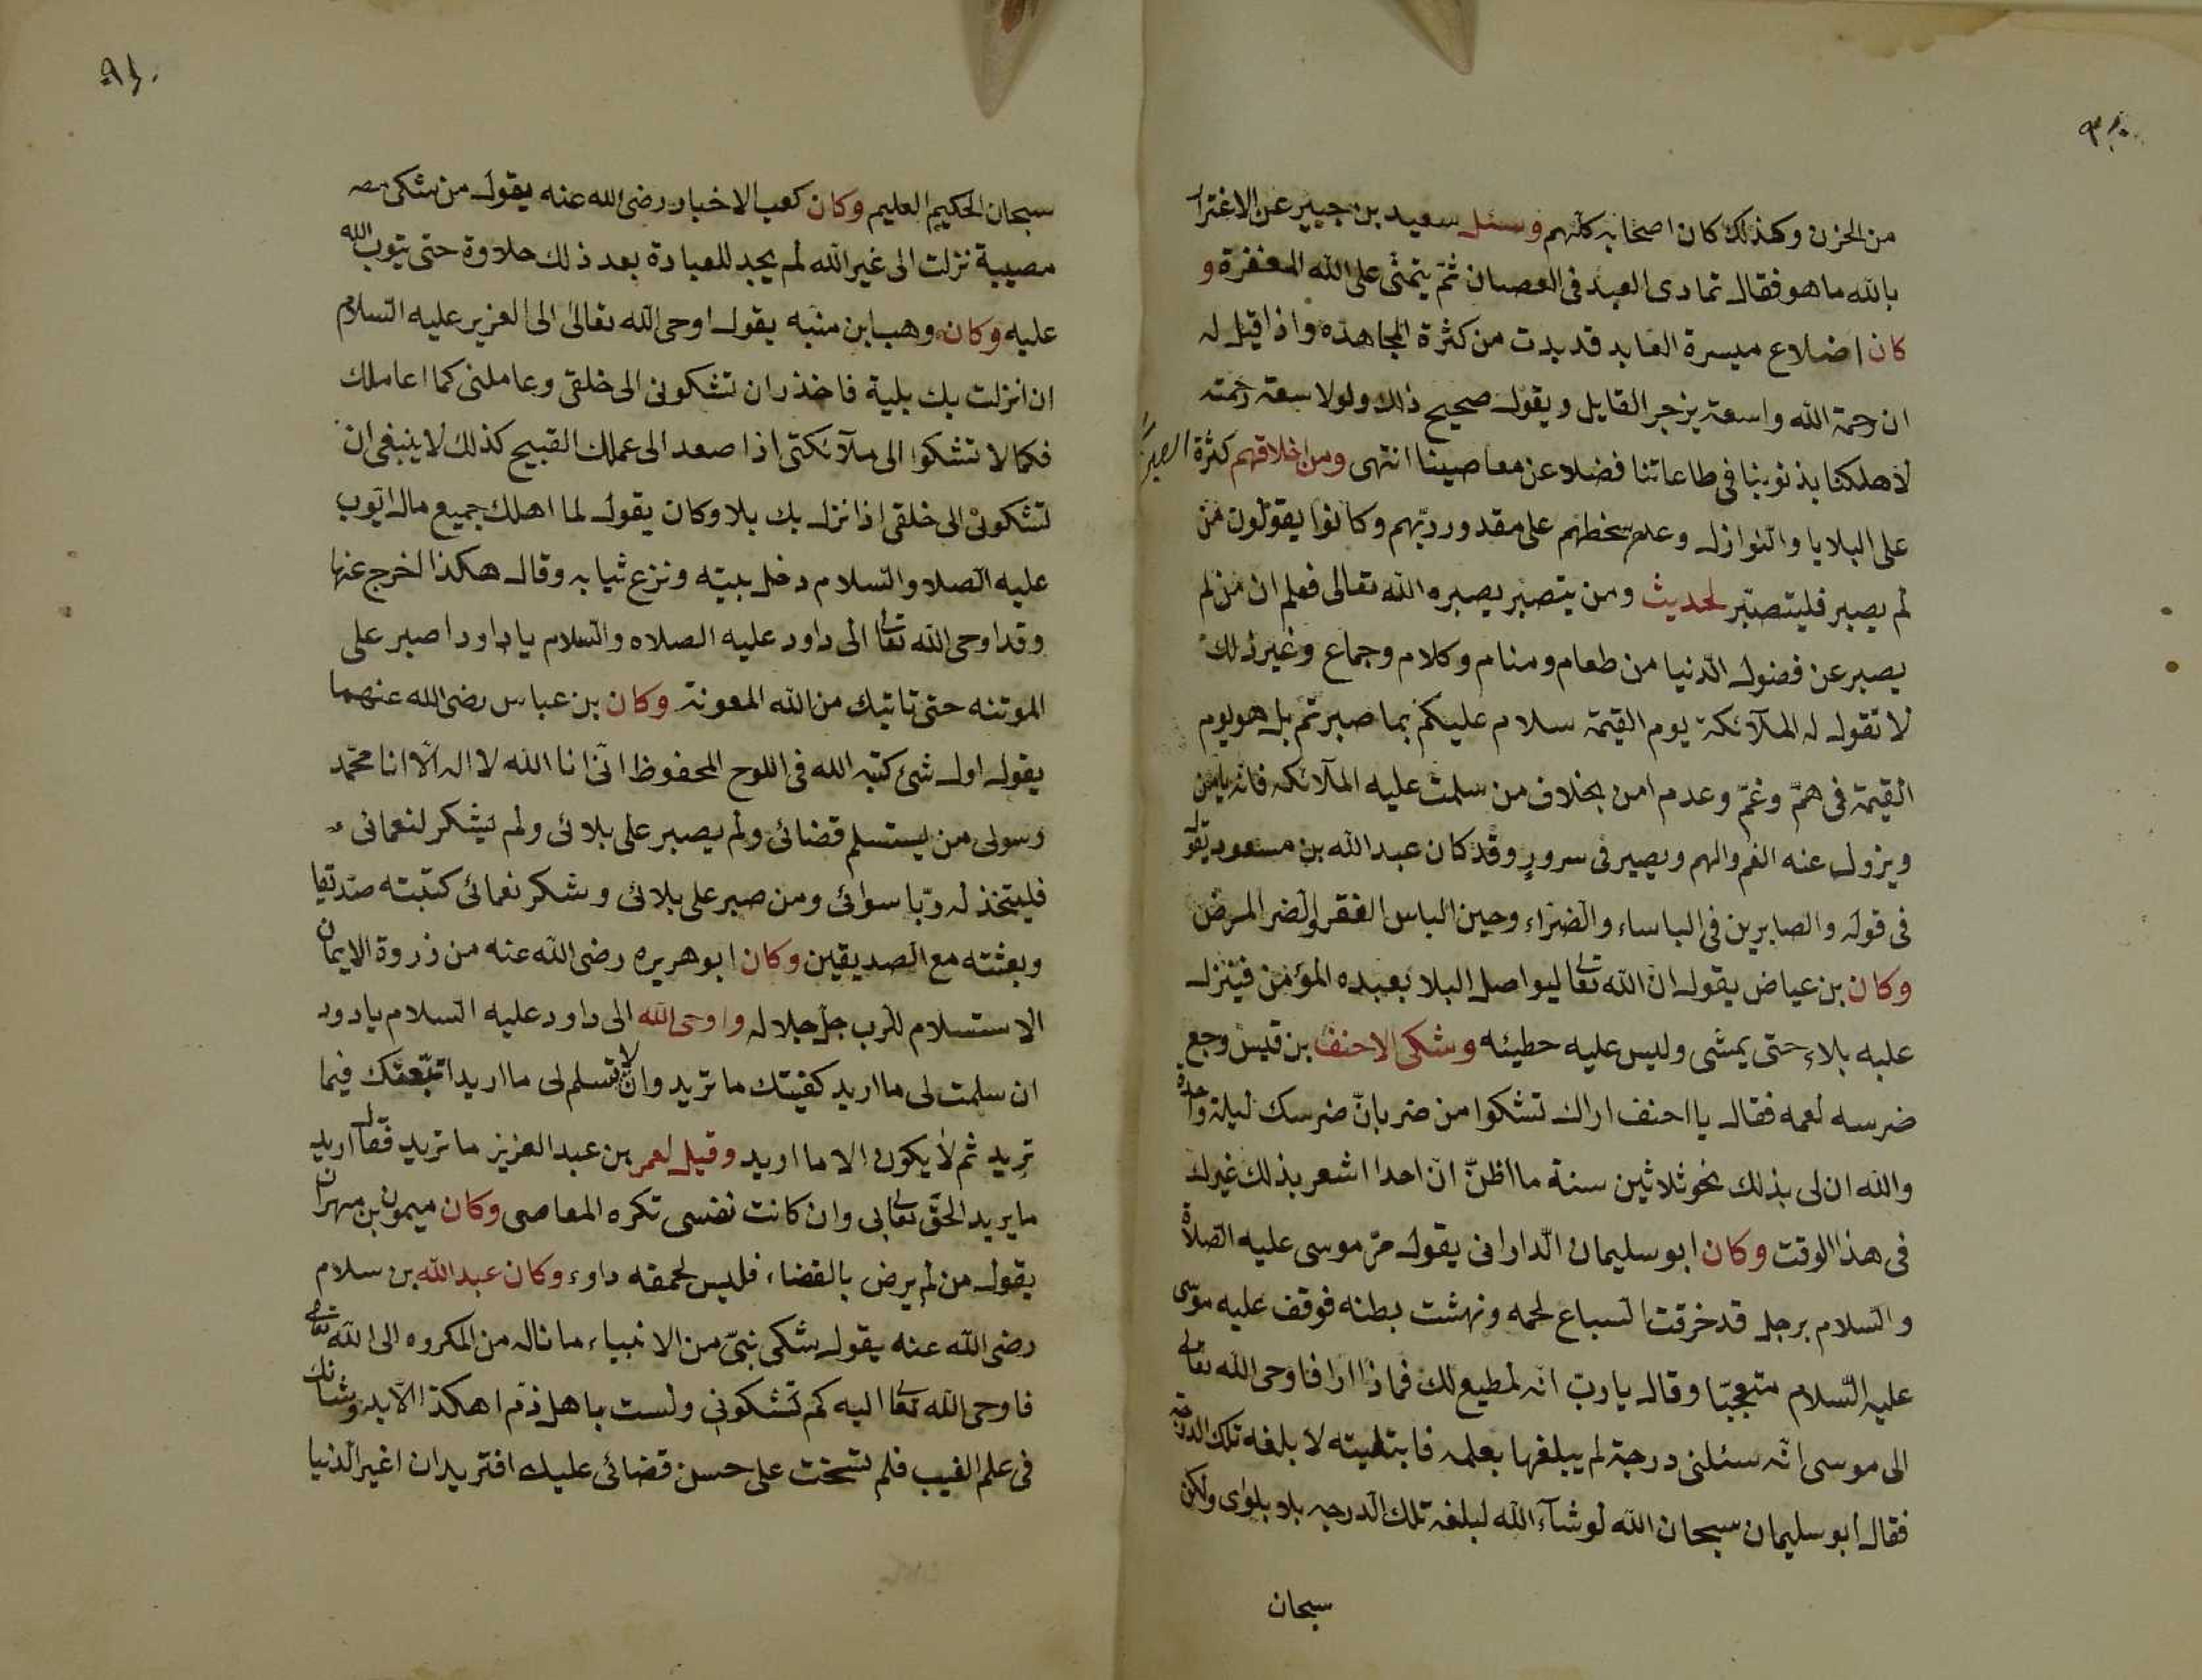 من الحزن وكذلك كان اصحابه كلهم وسئل سعيد بن جبير عن الاغترار
بالله ما هو فقال تمادى العبد فى العصيان ثم يتمنى على الله المغفرة و
كان اضلاع ميسرة العابد قد بدت من كثرة المجاهده واذا قيل له
ان رحمة الله واسعة يزجر القايل ويقول صحيح ذلك ولولا سعة رحمته
لاهلكنا بذنوبنا فى طاعاتنا فضلا عن معاصينا انتهى ومن اخلاقهم كثرة الصبر
على البلايا والنوازل وعدم تسخطهم على مقدور ربهم وكانوا يقولون من
لم يصبر فليتصبر لحديث ومن يتصبر يصبره الله تعالى فعلم ان من لم
يصبر عن فضول الدنيا من طعام ومنام وكلام وجماع وغير ذلك
لا تقول له الملآئكة يوم القيمة سلام عليكم بما صبرتم بل هو يوم
القيمة فى هم وغم وعدم امن بخلاف من سلمت عليه الملآئكه فانه يامن
ويزول عنه الغم والهم ويصير فى سرور وقد كان عبد الله بن مسعود يقول
فى قوله والصابرين فى الباساء والضراء وحين الباس الفقر والضر المرض
وكان بن عياض يقول ان الله تعالى ليواصل البلا بعبده المؤمن فينزل
عليه بلاء حتى يمشى وليس عليه حطيئه وشكى الاحنف بن قيس وجع
ضرسه لعمه فقال يا احنف اراك تشكوا من ضربان ضرسك ليلة واحدة
والله ان لى بذلك نحو ثلاثين سنة ما اظن ان احدا اشعر بذلك غيرك
فى هذا الوقت وكان ابو سليمان الدارانى يقول مر موسى عليه الصلاة
والسلام برجل قد خرقت السباع لحمه ونهشت بطنه فوقف عليه موسى
عليه السلام متعجبا وقال يا رب انه لمطيع لك فماذا ارا فاوحى الله تعالى
الى موسى انه سئلنى درجة لم يبلغها بعلمه فابتليته لا بلغه تلك الدرجه
فقال ابو سليمان سبحان الله لو شآء الله لبلغه تلك الدرجه بلا بلواى ولكن
سبحان
٩١
سبحان الحكيم العليم وكان كعب الاخبار رضى الله عنه يقول من شكى
مصيبة نزلت الى غير الله لم يجد للعبادة بعد ذلك حلاوة حتى يتوب الله
عليه وكان وهب ابن منبه يقول اوحى الله تعالى الى العزير عليه السلام
ان انزلت بك بلية فاحذر ان تشكونى الى خلقى وعاملنى كما اعاملك
فكما لا تشكوا الى ملآئكتى اذا صعد الى عملك القبيح كذلك لا ينبغى ان
تشكونى الى خلقى اذا نزل بك بلا وكان يقول لما اهلك جميع مال ايوب
عليه الصلا والسلام دخل بيته ونزع ثيابه وقال هكذا اخرج عنها
وقد اوحى الله تعالى الى داود عليه الصلاه والسلام يا داود اصبر على
الموتنه حتى تاتيك من الله المعونة وكان بن عباس رضى الله عنهما
يقول اول شئ كتبه الله فى اللوح المحفوظ انى انا الله لا اله الا انا محمد
رسولى من يستسلم قضائى ولم يصبر على بلائى ولم يشكر لنعمائى
فليتخذ له ربا سوائى ومن صبر على بلائى وشكر نعمائى كتبته صديقا
وبعثته مع الصديقين وكان ابو هريره رضى الله عنه من ذروة الايمان
الاستسلام للرب جل جلاله واوحى الله الى داود عليه السلام يا دود
ان سلمت لى ما اريد كفيتك ما تريد وان لا تسلم لى ما اريد اتبعتك فيما
تريد ثم لا يكون الا ما اريد وقيل لعمر بن عبد العزيز ما تريد فقال اريد
ما يريد الحق تعالى بى وان كانت نفسى تكره المعاصى وكان ميمون بن مهران
يقول من لم يرض بالقضاء فليس لحمقه داوء وكان عبد الله بن سلام
رضى الله عنه يقول شكى نبى من الانبياء ما ناله من المكروه الى الله تعالى
فاوحى الله تعالى اليه كم تشكونى ولست باهل ذم اهكذا
فى علم الغيب فلم تسخت على حسن قضائى عليك افتريد ان اغير الدنيا